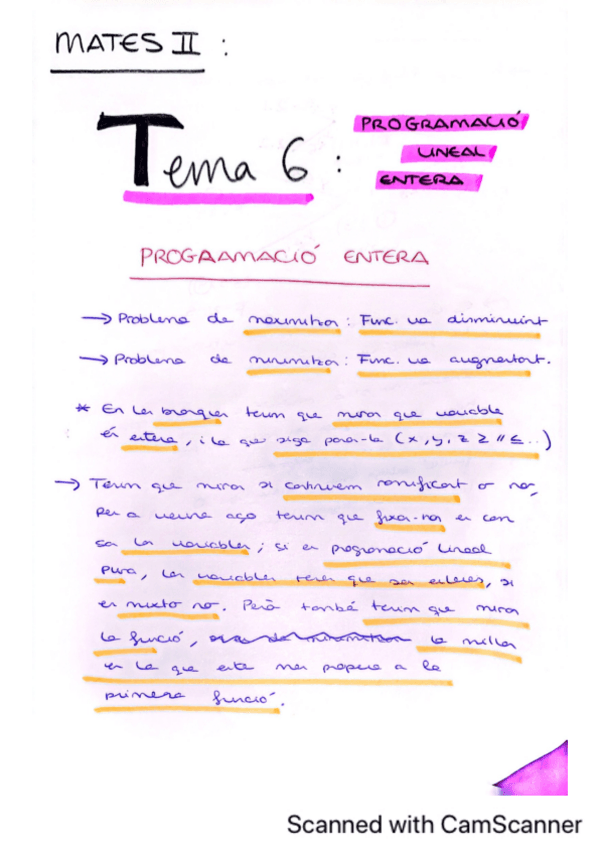 MATES II :
Tema 6 :
PROGRAMACIÓ
LINEAL
ENTERA
PROGRAMACIÓ ENTERA
→ Problema de maximitzar : Func. va disminuint
→ Problema de minimitzar : Func. va augmentant.
* En les branques tenim que mirar que variable
és entera, i la que siga parar-la (x, y, z ≥ // ≤ ..)
→ Tenim que mirar si continuem ramificant o no,
per a veure açò tenim que fixar-nos en com
són les variables; si és programació lineal
pura, les variables tenen que ser enteres, si
és mixta no. Però també tenim que mirar
la funció, la millor
és la que està més propera a la
primera funció.
Scanned with CamScanner